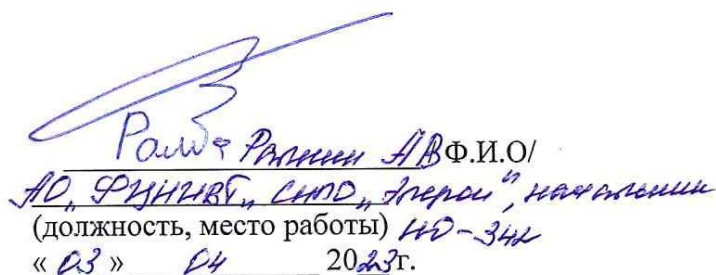 АВ Ф.И.О/
АО „ФЦНИВТ„ СНПО „Элерон", начальник
(должность, место работы) НО-342
« 03 » 04 2023г.